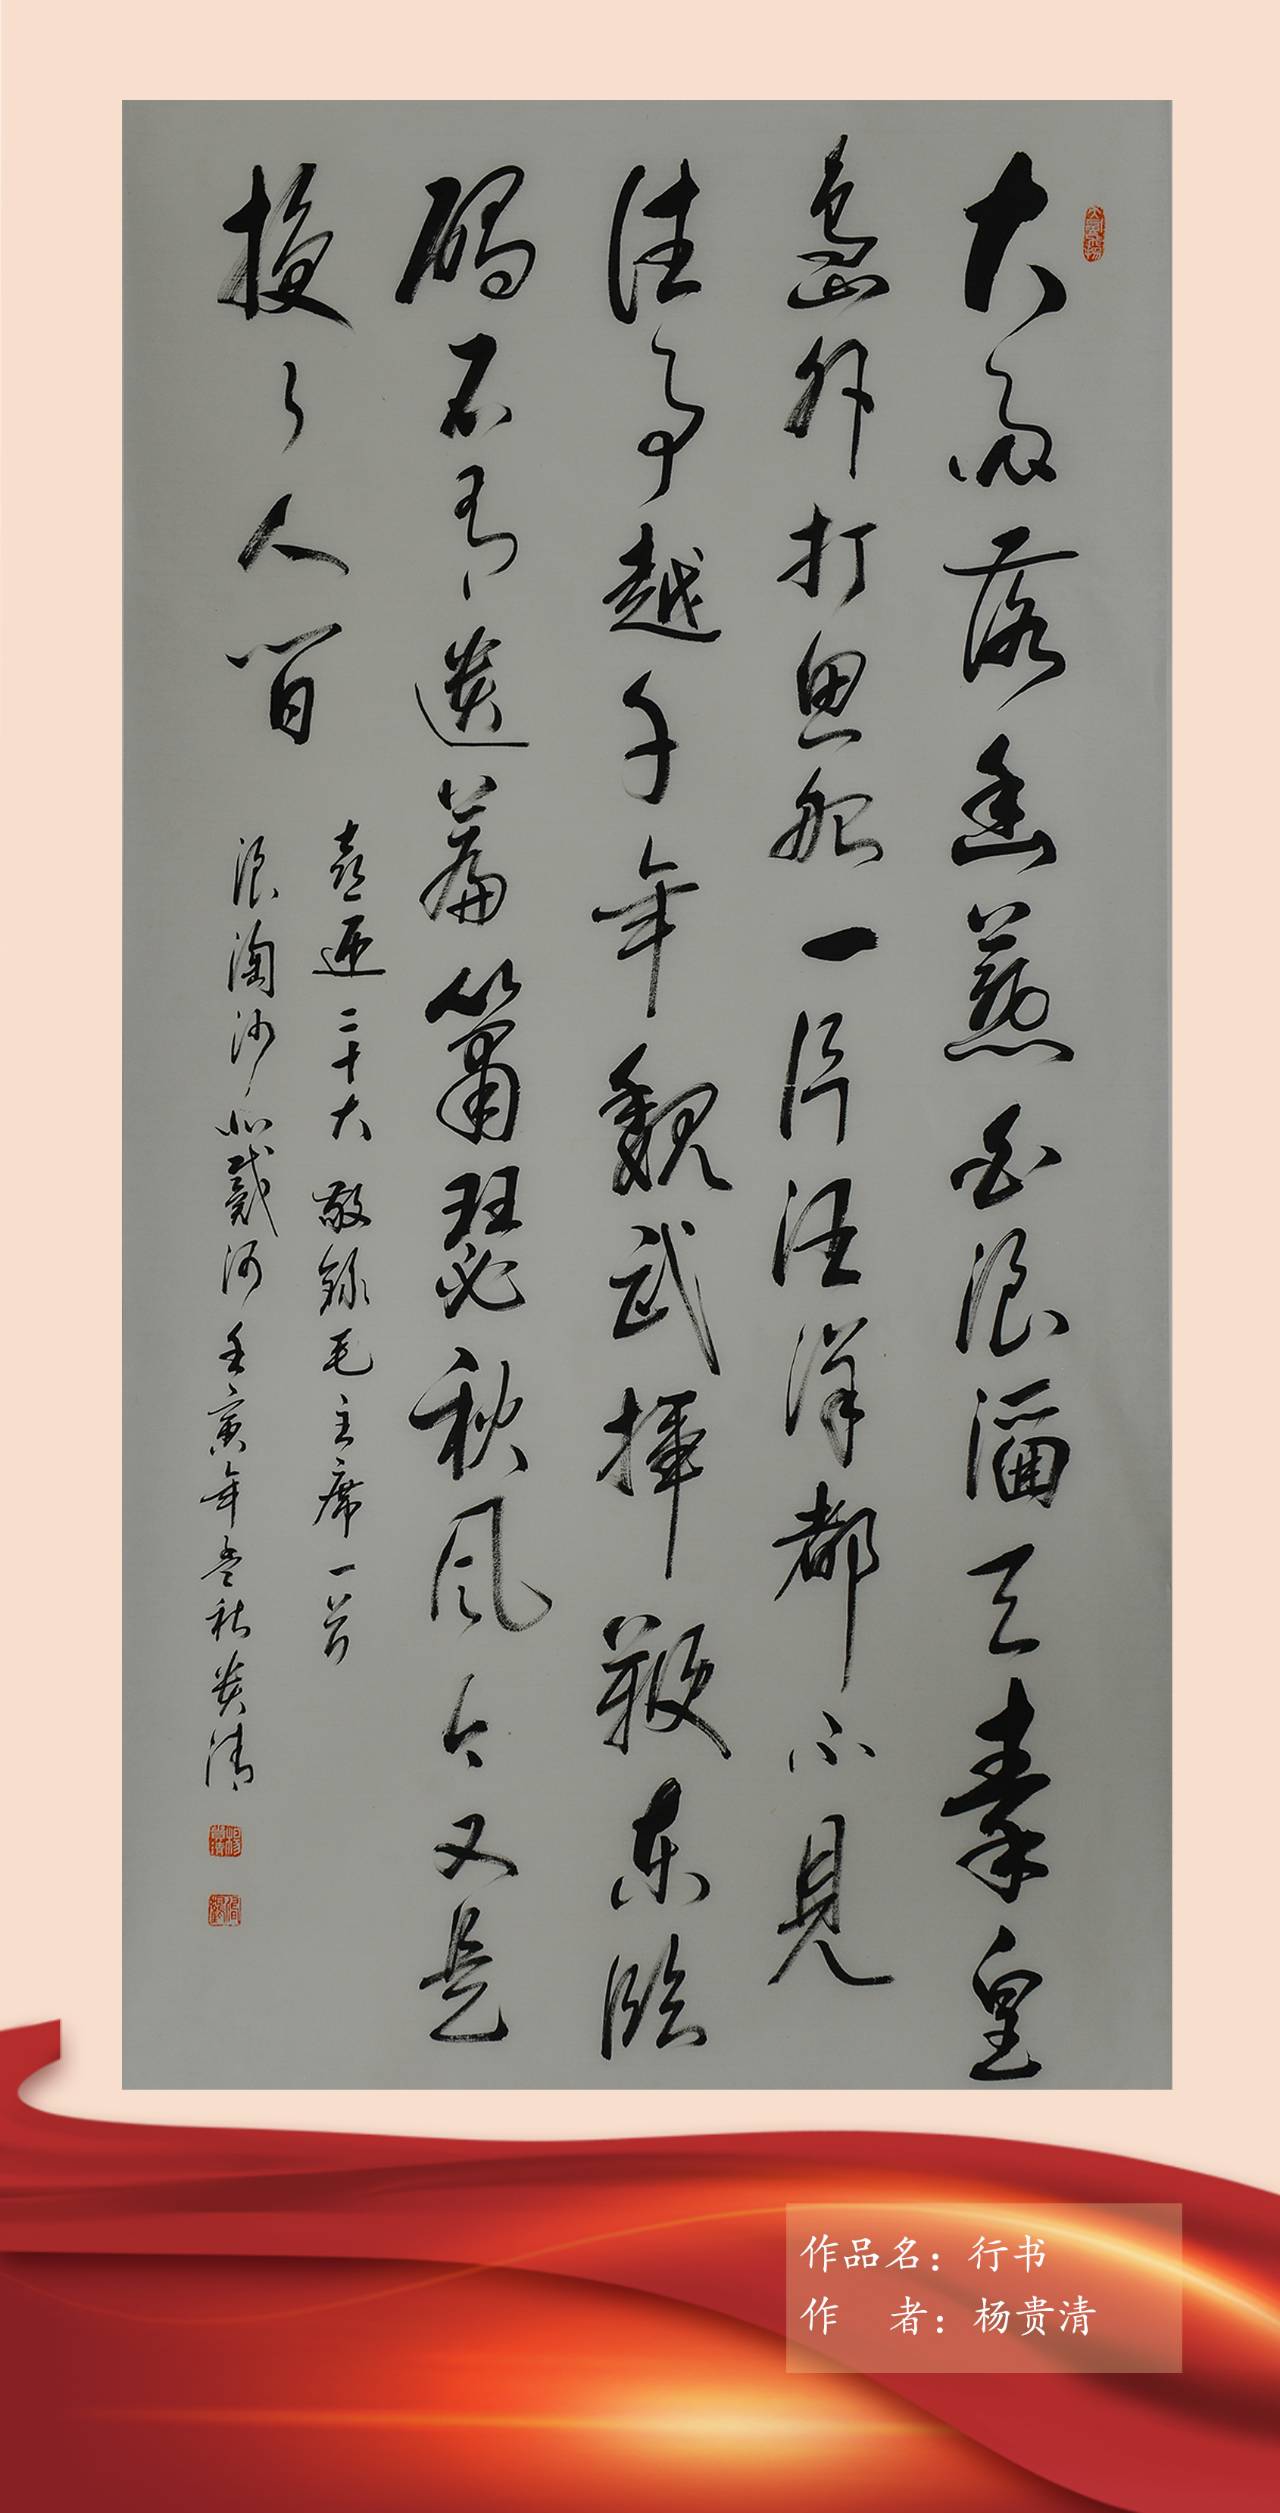 大雨落幽燕白浪滔天秦皇
岛外打鱼船一片汪洋都不見
往事越千年魏武揮鞭东临
碣石有遗篇簫瑟秋风今又是
换了人间
喜迎二十大敬録毛主席一首
浪淘沙北戴河壬寅年孟秋贵清
作品名：行书
作　者：杨贵清